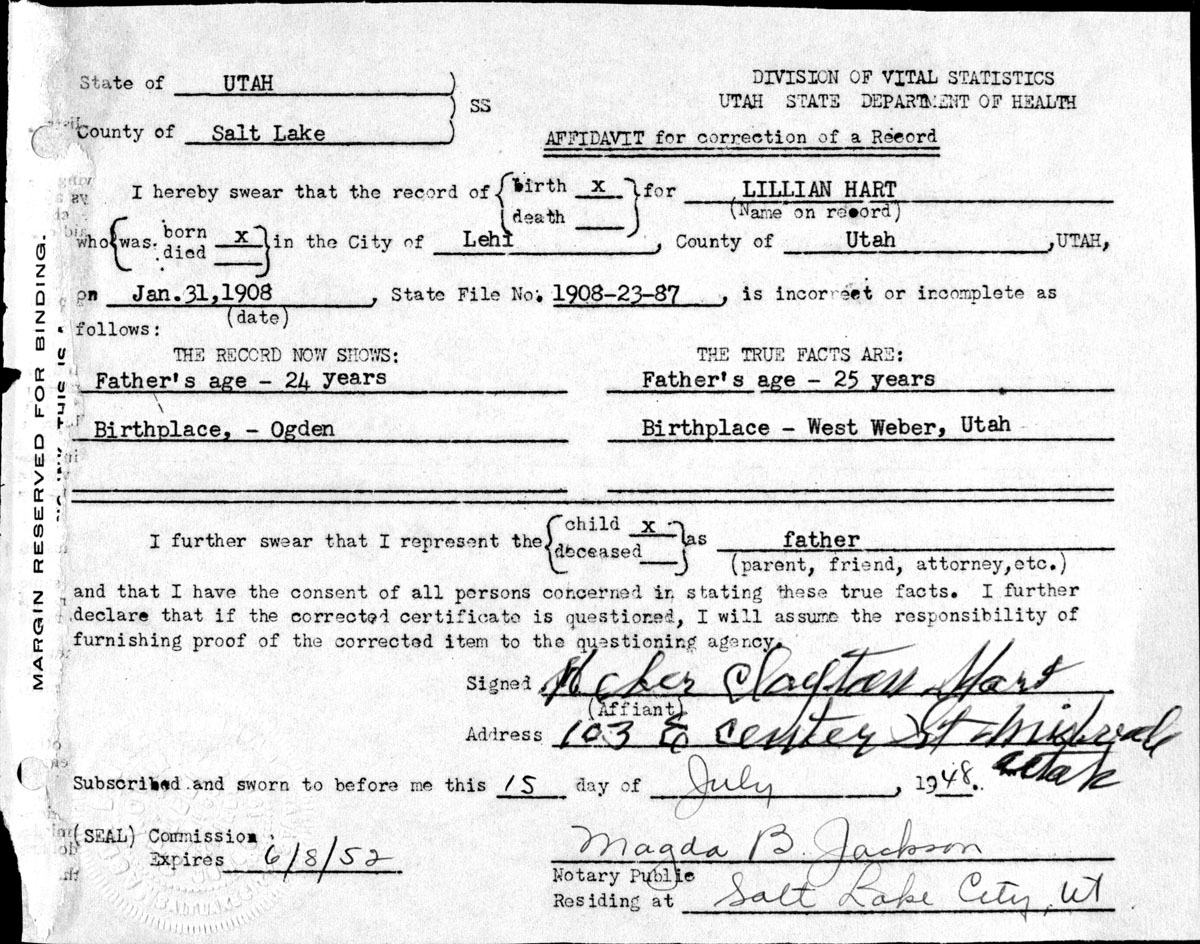 State of UTAH ) DIVISION OF VITAL STATISTICS
) SS UTAH STATE DEPARTMENT OF HEALTH
County of Salt Lake ) AFFIDAVIT for correction of a Record
I hereby swear that the record of { birth x } for LILLIAN HART
death (Name on record)
who { was. born x } in the City of Lehi, County of Utah, UTAH,
died
on Jan.31,1908, State File No. 1908-23-87, is incorrect or incomplete as
(date)
follows:
THE RECORD NOW SHOWS: THE TRUE FACTS ARE:
Father's age - 24 years Father's age - 25 years
Birthplace, - Ogden Birthplace - West Weber, Utah
I further swear that I represent the { child x } as father
deceased (parent, friend, attorney,etc.)
and that I have the consent of all persons concerned in stating these true facts. I further
declare that if the corrected certificate is questioned, I will assume the responsibility of
furnishing proof of the corrected item to the questioning agency.
Signed Heber Clayton Hart
(Affiant)
Address 103 E Center St Midvale
Utah
Subscribed and sworn to before me this 15 day of July, 1948.
(SEAL) Commission Magda B. Jackson
Expires 6/8/52
Notary Public
Residing at Salt Lake City, Ut
MARGIN RESERVED FOR BINDING.
THIS IS